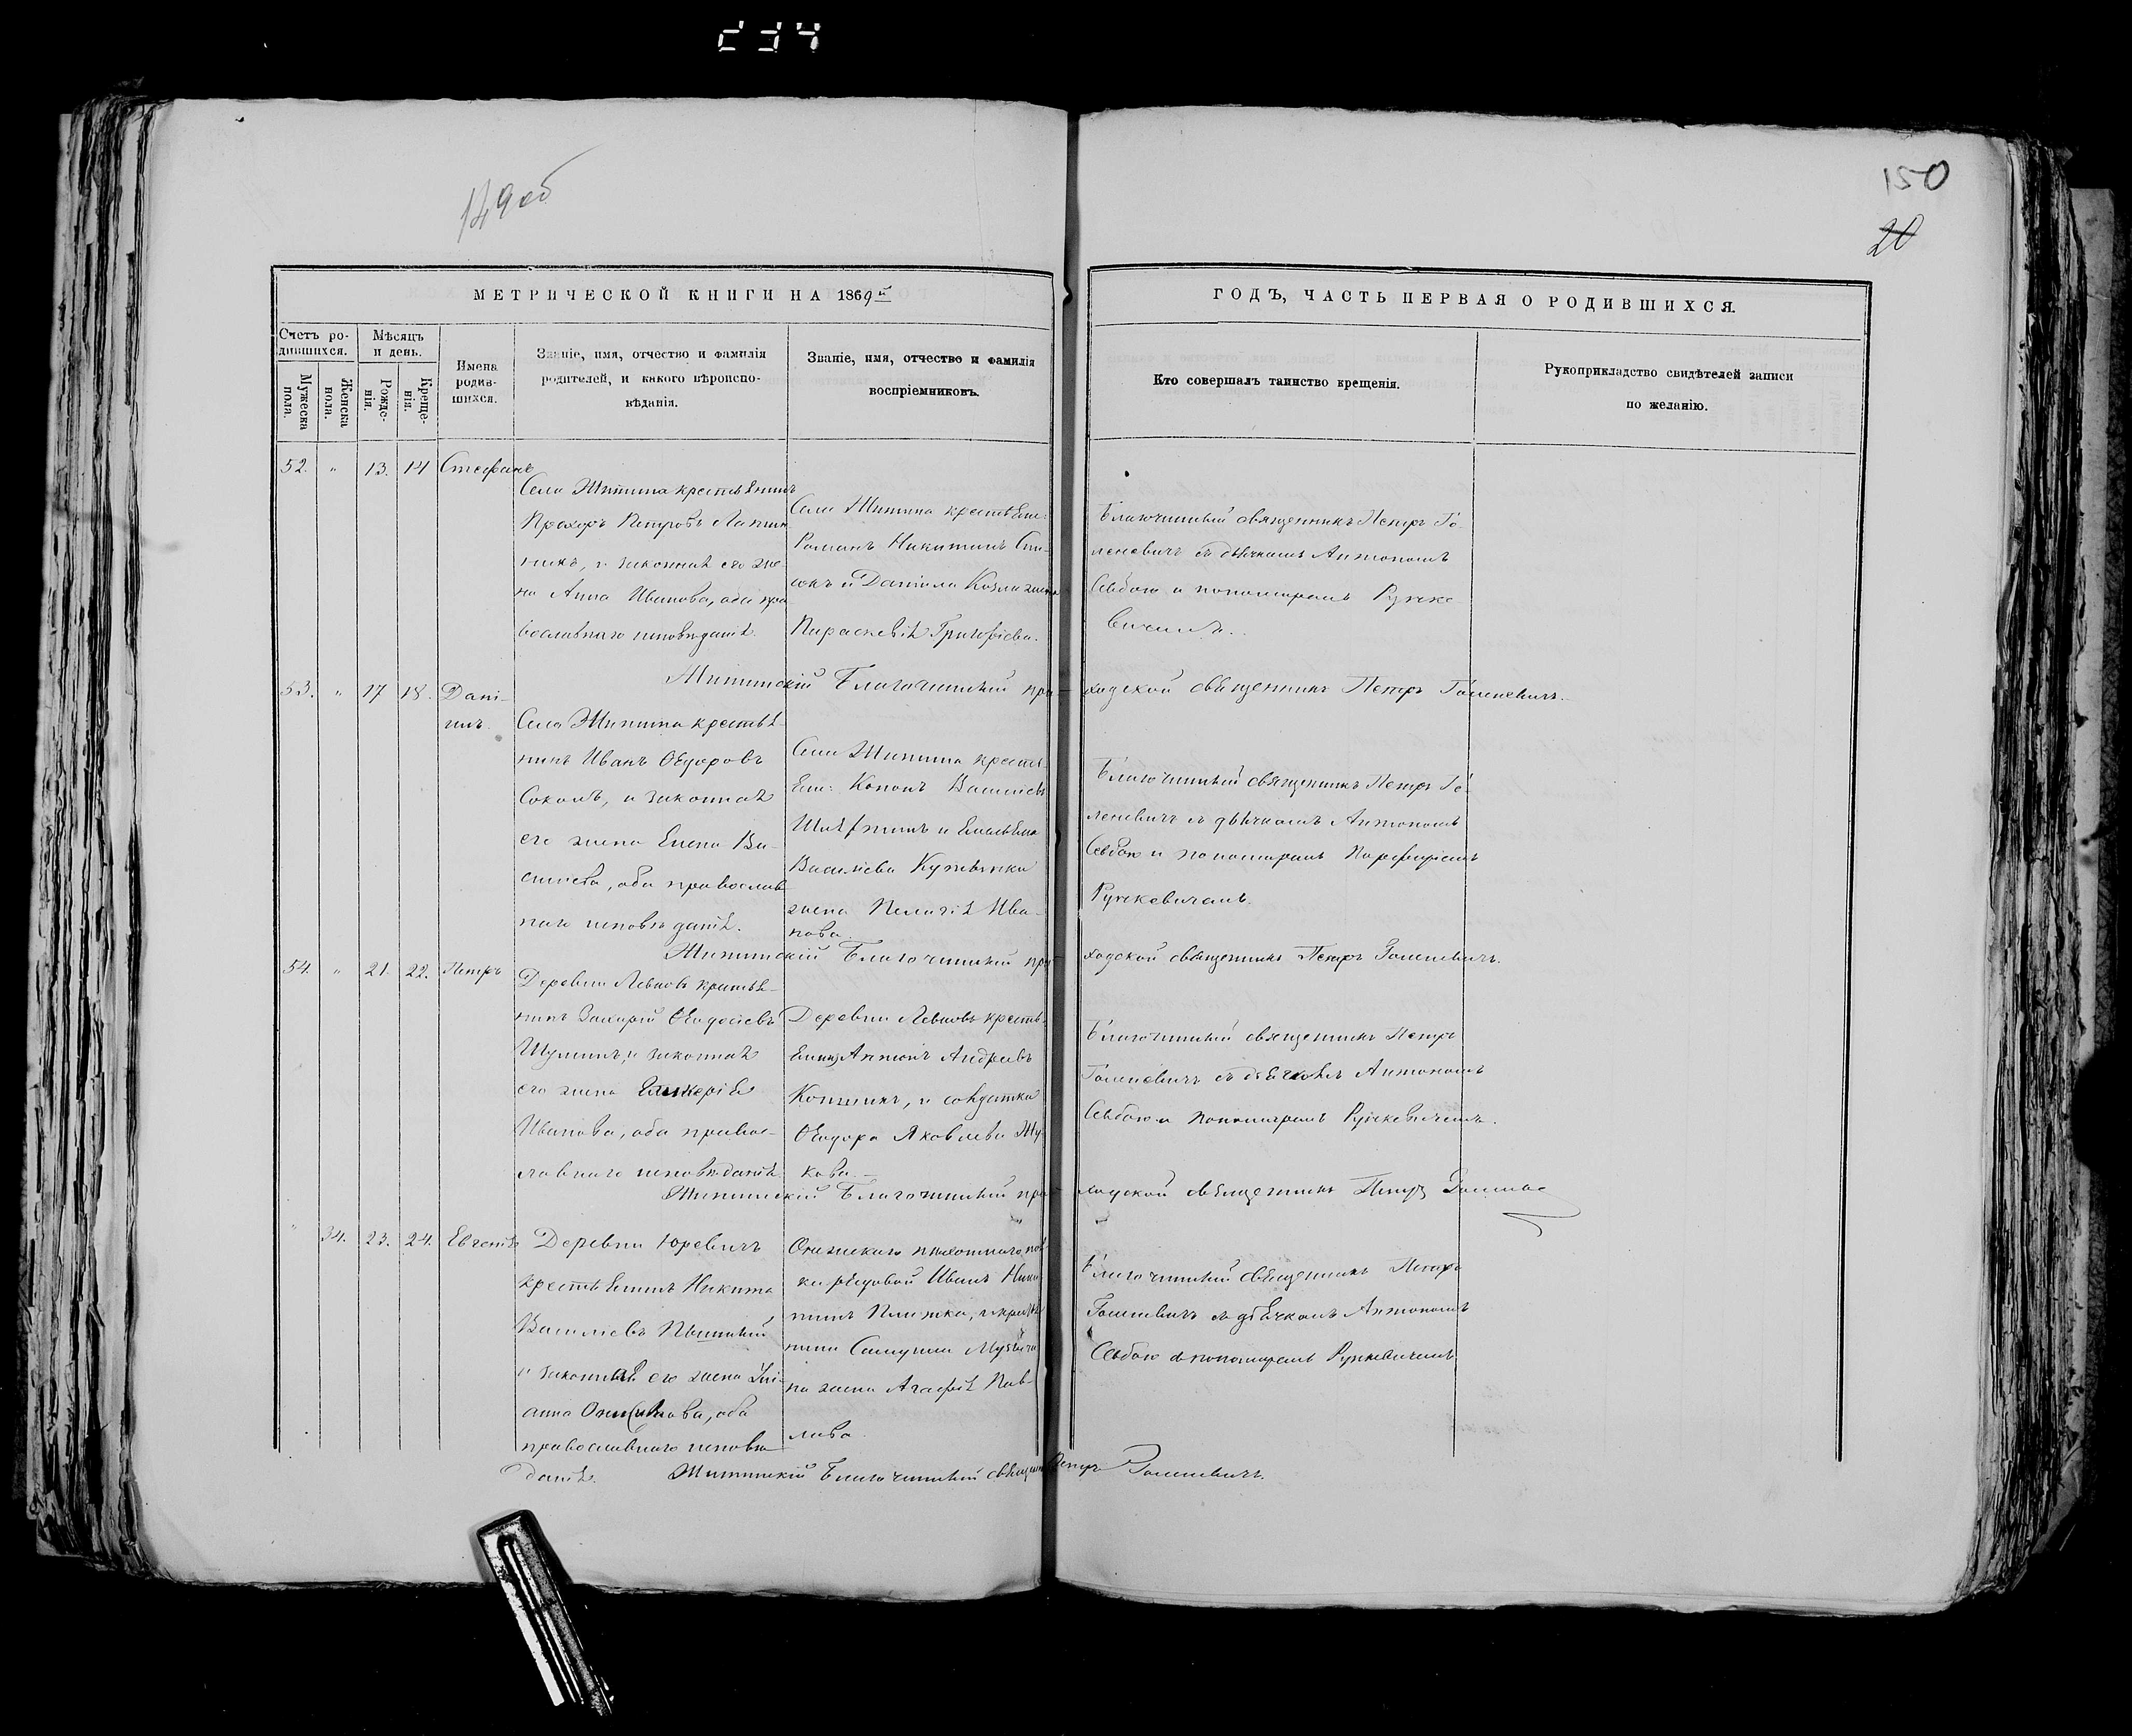 234
149 об
150
20
МЕТРИЧЕСКОЙ КНИГИ НА 1869й
ГОДЪ, ЧАСТЬ ПЕРВАЯ О РОДИВШИХСЯ.
Счетъ ро-
дившихся.
Мужеска
пола.
Женска
пола.
Мѣсяцъ
и день.
Рожде-
нія.
Креще-
нія.
Имена
родив-
шихся.
Званіе, имя, отчество и фамилія
родителей, и какого вѣроиспо-
вѣданія.
Званіе, имя, отчество и фамилія
воспріемниковъ.
Кто совершалъ таинство крещенія.
Рукоприкладство свидѣтелей записи
по желанію.
52. " 13. 14 Стефанъ
Села Житина крестьянинъ
Прохоръ Петровъ
и законная его же-
на Анна Иванова, оба пра
вославнаго исповѣданія.
Села Житина крестьян:
Романъ Никитинъ
и Даніила Козла жена
Параскевія Григоріева.
Благочинный священникъ Петръ Го-
леневичъ съ дьячкомъ Антономъ
Сѣвбою и пономаремъ Рункe
вичемъ.
Житинскій Благочинный при-
ходской священникъ Петръ Голеневичъ.
53. " 17 18. Дані-
илъ.
Села Житина крестья-
нинъ Иванъ Ѳедоровъ
Соколъ, и законная
его жена Елена Ва-
силіева, оба православ
наго исповѣданія.
Села Житина кресть
ян: Кононъ Василіевъ
и Емельяна
Василіева
жена Пелагія Ива-
нова.
Благочинный священникъ Петръ Го-
леневичъ съ дьячкомъ Антономъ
Сѣвбою и пономаремъ Порфиріемъ
Рункевичемъ.
Житинскій Благочинный при-
ходской священникъ Петръ Голеневичъ.
54. " 21. 22. Петръ
Деревни Левковъ крестья-
нинъ Захарій
и законная
его жена
Иванова, оба правос-
лавнаго исповѣданія.
Деревни Левковъ кресть-
янинъ Антонъ Андреевъ
и солдатка
Ѳеодора Яковлева Жу-
кова.
Благочинный священникъ Петръ
Голеневичъ съ дьячкомъ Антономъ
Сѣвбою и пономаремъ Рункевичемъ.
Житинскій Благочинный при-
ходской священникъ Петръ
" 34. 23. 24. Евгенія
Деревни Юревичъ
крестьянинъ Никита
Василіевъ
и законная его жена Улі-
анна
православнаго исповѣ
данія.
пѣхотнаго пол
ка рядовой Иванъ Ники
тинъ
жена Агафія Пав-
лова.
Благочинный священникъ Петръ
Голеневичъ съ дьячкомъ Антономъ
Сѣвбою и пономаремъ Рункевичемъ
Житинскій Благочинный священ Петръ Голеневичъ.